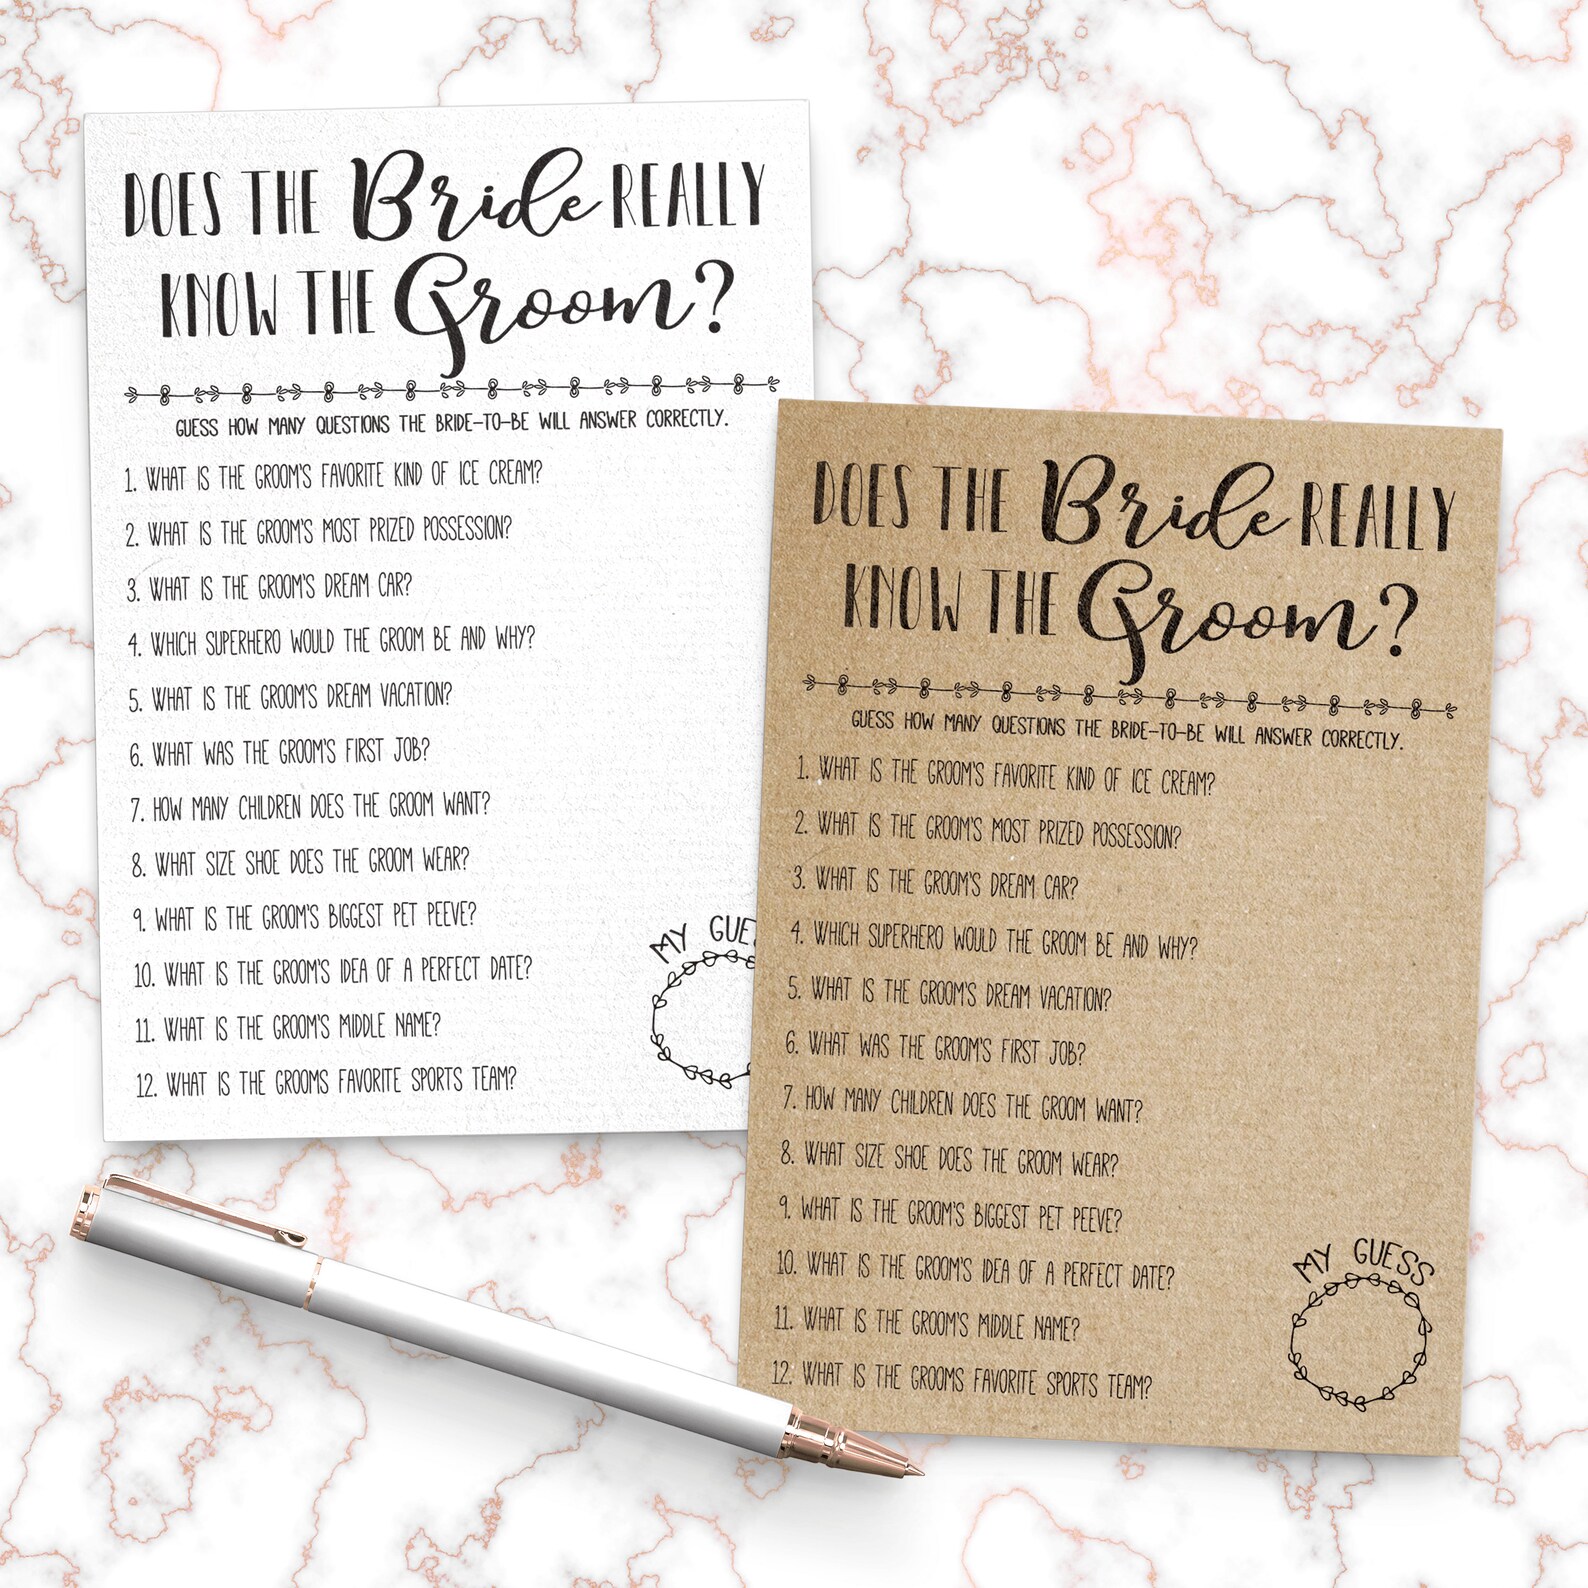 DOES THE Bride REALLY
KNOW THE Groom?
GUESS HOW MANY QUESTIONS THE BRIDE-TO-BE WILL ANSWER CORRECTLY.
1. WHAT IS THE GROOM'S FAVORITE KIND OF ICE CREAM?
2. WHAT IS THE GROOM'S MOST PRIZED POSSESSION?
3. WHAT IS THE GROOM'S DREAM CAR?
4. WHICH SUPERHERO WOULD THE GROOM BE AND WHY?
5. WHAT IS THE GROOM'S DREAM VACATION?
6. WHAT WAS THE GROOM'S FIRST JOB?
7. HOW MANY CHILDREN DOES THE GROOM WANT?
8. WHAT SIZE SHOE DOES THE GROOM WEAR?
9. WHAT IS THE GROOM'S BIGGEST PET PEEVE?
10. WHAT IS THE GROOM'S IDEA OF A PERFECT DATE?
11. WHAT IS THE GROOM'S MIDDLE NAME?
12. WHAT IS THE GROOMS FAVORITE SPORTS TEAM?
MY GUE
DOES THE Bride REALLY
KNOW THE Groom?
GUESS HOW MANY QUESTIONS THE BRIDE-TO-BE WILL ANSWER CORRECTLY.
1. WHAT IS THE GROOM'S FAVORITE KIND OF ICE CREAM?
2. WHAT IS THE GROOM'S MOST PRIZED POSSESSION?
3. WHAT IS THE GROOM'S DREAM CAR?
4. WHICH SUPERHERO WOULD THE GROOM BE AND WHY?
5. WHAT IS THE GROOM'S DREAM VACATION?
6. WHAT WAS THE GROOM'S FIRST JOB?
7. HOW MANY CHILDREN DOES THE GROOM WANT?
8. WHAT SIZE SHOE DOES THE GROOM WEAR?
9. WHAT IS THE GROOM'S BIGGEST PET PEEVE?
10. WHAT IS THE GROOM'S IDEA OF A PERFECT DATE?
11. WHAT IS THE GROOM'S MIDDLE NAME?
12. WHAT IS THE GROOMS FAVORITE SPORTS TEAM?
MY GUESS